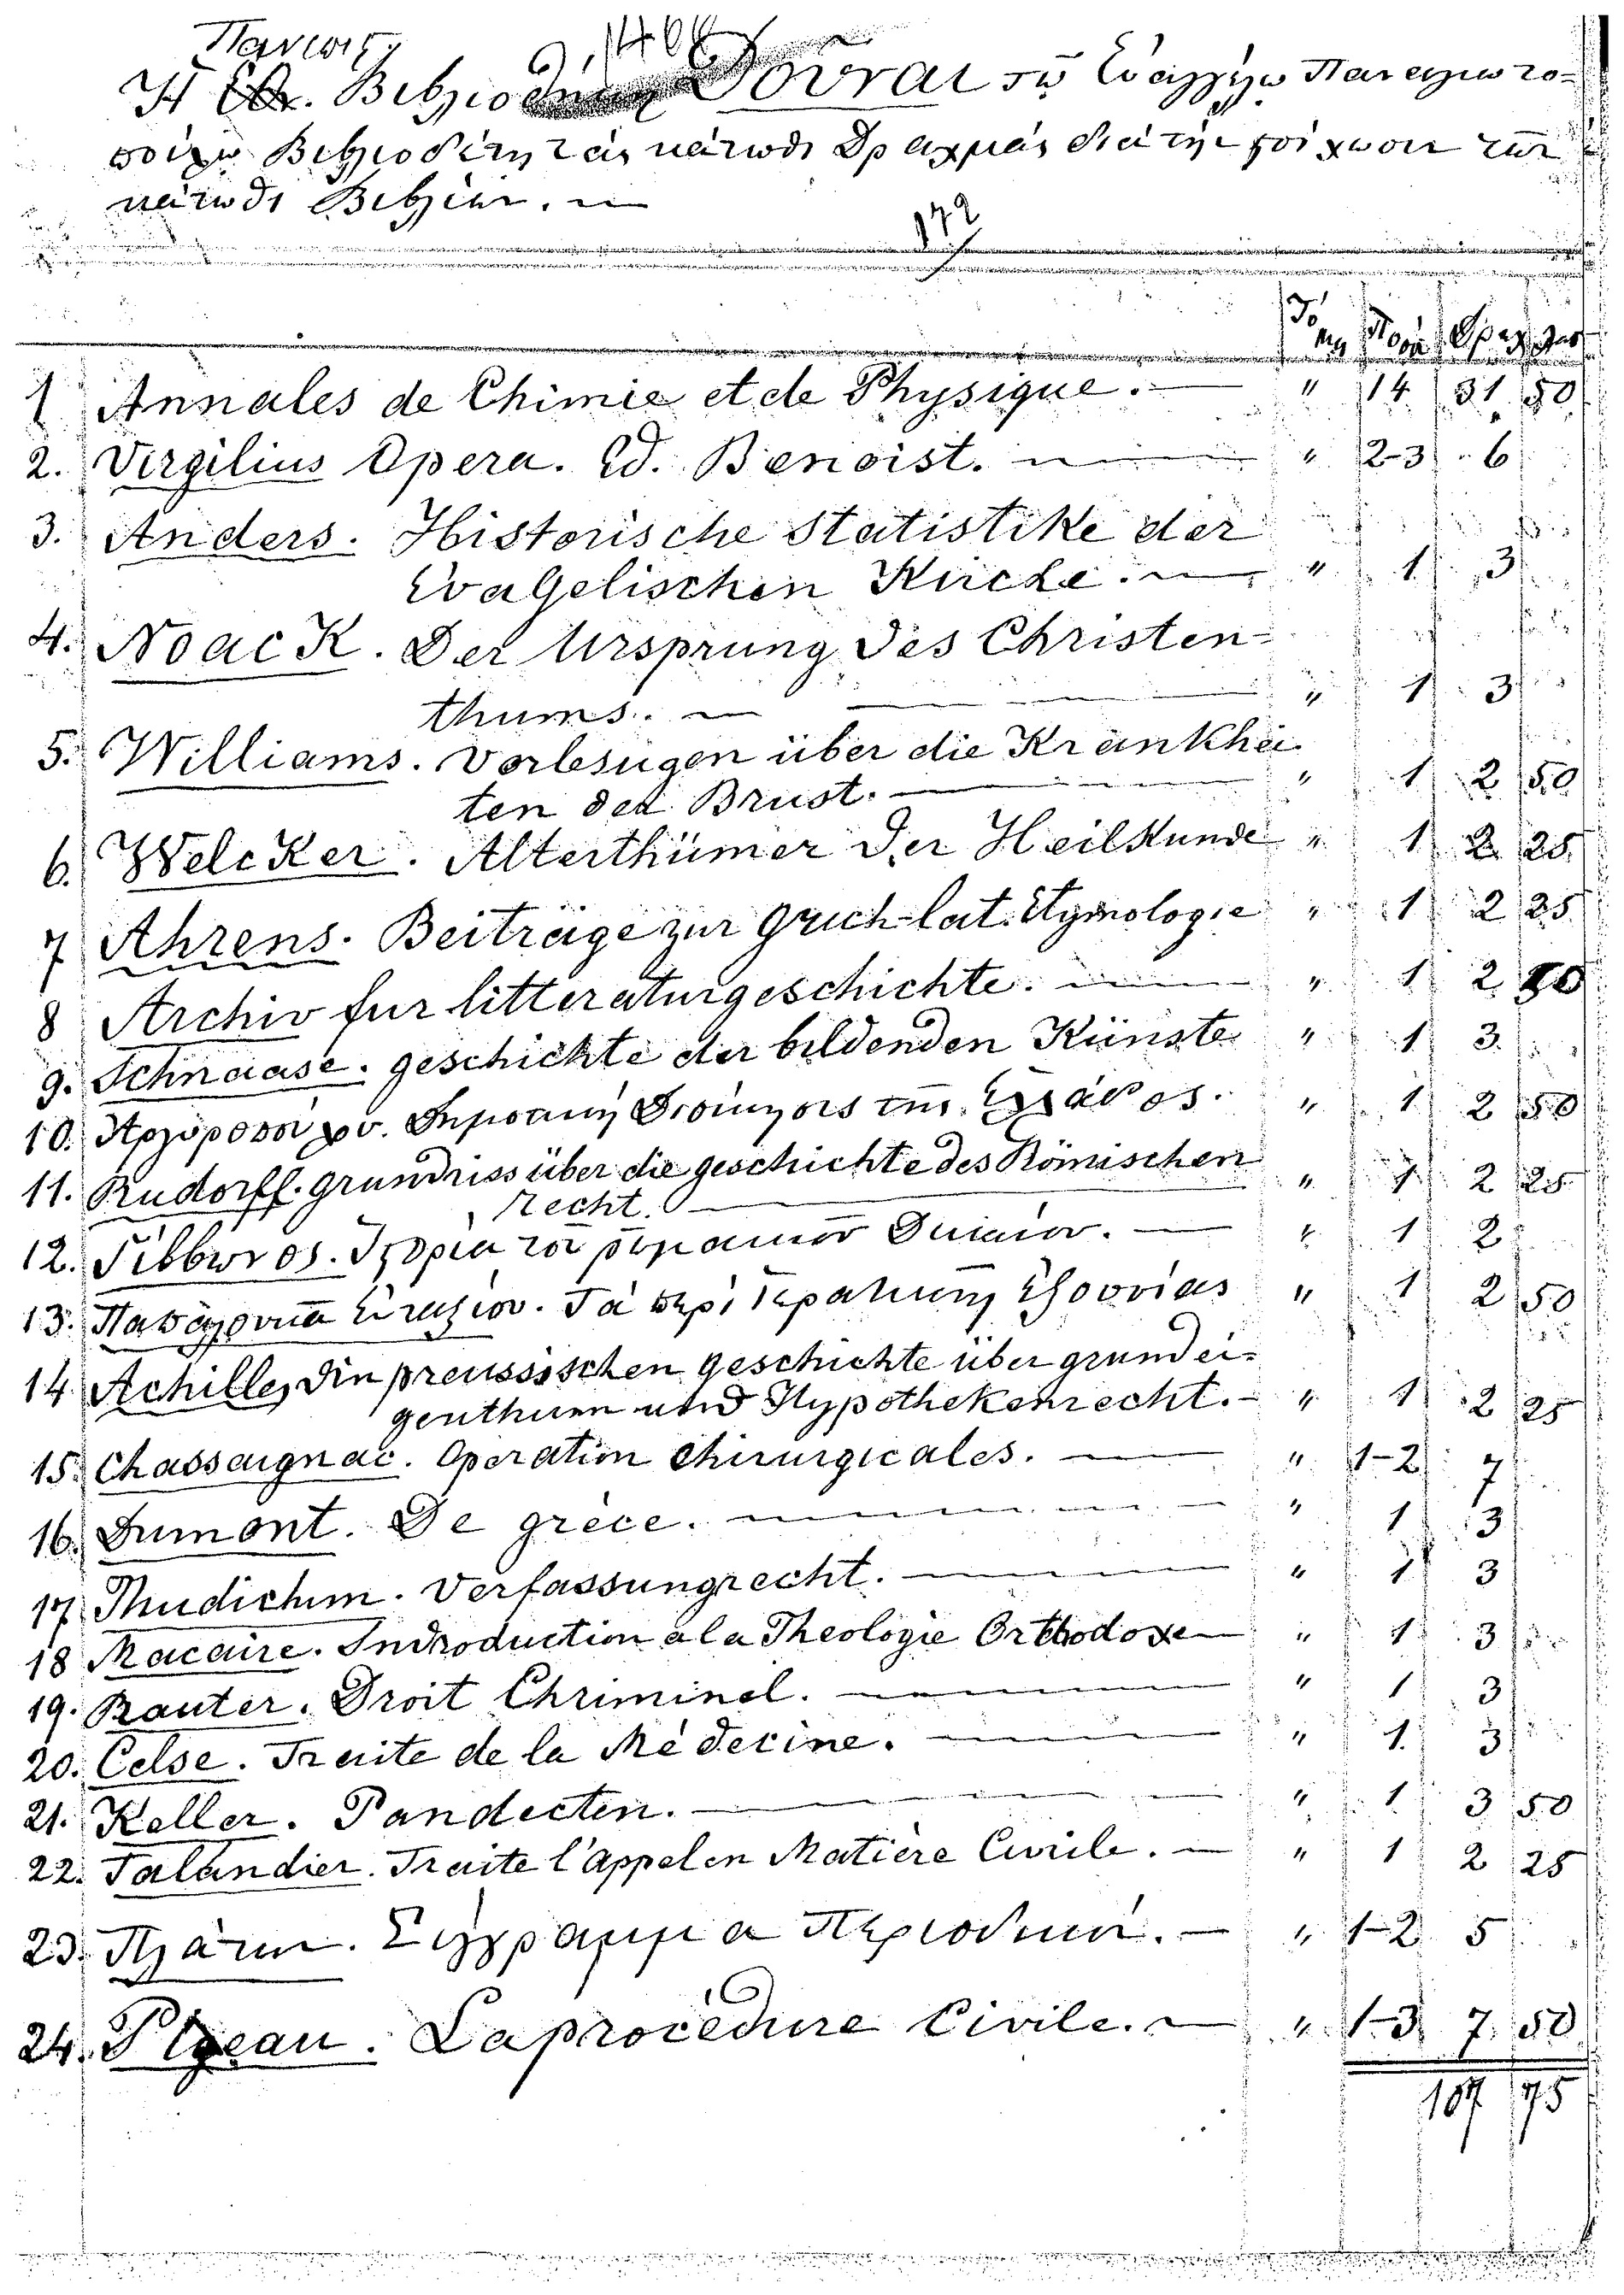 Πανεπις
Η Εθν. Βιβλιοθήκη Δοῦναι τῷ Εὐαγγέλῳ Παναγιωτο-
πούλῳ Βιβλιοδέτῃ τὰς κάτωθι Δραχμὰς διὰ τὴν στάχωσιν τῶν
κάτωθι Βιβλίων.
172
Τό μοι Ποσά Δραχ λεπ
1 Annales de Chimie et de Physique. " 14 31 50
2. Virgilius Opera. Ed. Benoist. " 2-3 6
3. Anders. Historische Statistike der
Evagelischen Kirche. " 1 3
4. Noack. Der Ursprung des Christen-
thums. " 1 3
5. Williams. Vorlesugen über die Krankhei-
ten der Brust. " 1 2 50
6. Welcker. Alterthümer der Heilkunde " 1 2 25
7 Ahrens. Beiträge zur Grich-lat. Etymologie " 1 2 25
8 Archiv fur litteraturgeschichte. " 1 2 50
9. Schnaase. geschichte der bildenden Künste " 1 3
10. Αργυροπούλου. Δημοτικὴ Διοίκησις τῆς Ἑλλάδος. " 1 2 50
11. Rudorff. grundriss über die geschichte des Römischen
recht. " 1 2 25
12. Γίββωνος. Ἱστορία τοῦ ρωμαικοῦ Δικαίου. " 1 2
13. Τὰ περὶ ἐξουσίας " 1 2 50
14 Achilles din preussischen geschichte über grundei-
genthum und Hypothekenrecht. " 1 2 25
15. Chassaignac. Operation Chirurgicales. " 1-2 7
16. Dumont. De grèce. " 1 3
17. Thudichum. Verfassungrecht. " 1 3
18 Macaire. Indroduction a la Theologie Orthodoxe " 1 3
19. Rauter. Droit Chriminel. " 1 3
20. Celse. Traite de la Médecine. " 1 3
21. Keller. Pandecten. " 1 3 50
22. Talandier. Traite l'Appel en Matière Civile. " 1 2 25
23. Πλάτων. Σύγγραμμα Περιοδικόν. " 1-2 5
24. Pigeau. La procedure Civile. " 1-3 7 50
107 75